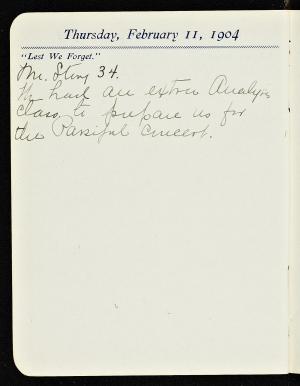 Thursday, February 11, 1904
"Lest We Forget."
Mr. 34.
We had an extra Analysis
class to prepare us for
the Parsifal concert.